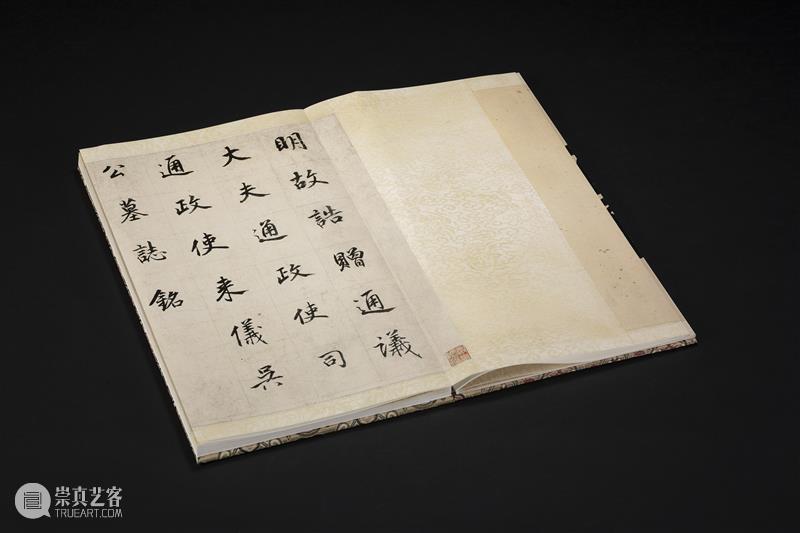 明故誥贈通議
大夫通政使司
通政使来儀吳
公墓誌銘
崇真艺客
TRUEART.COM